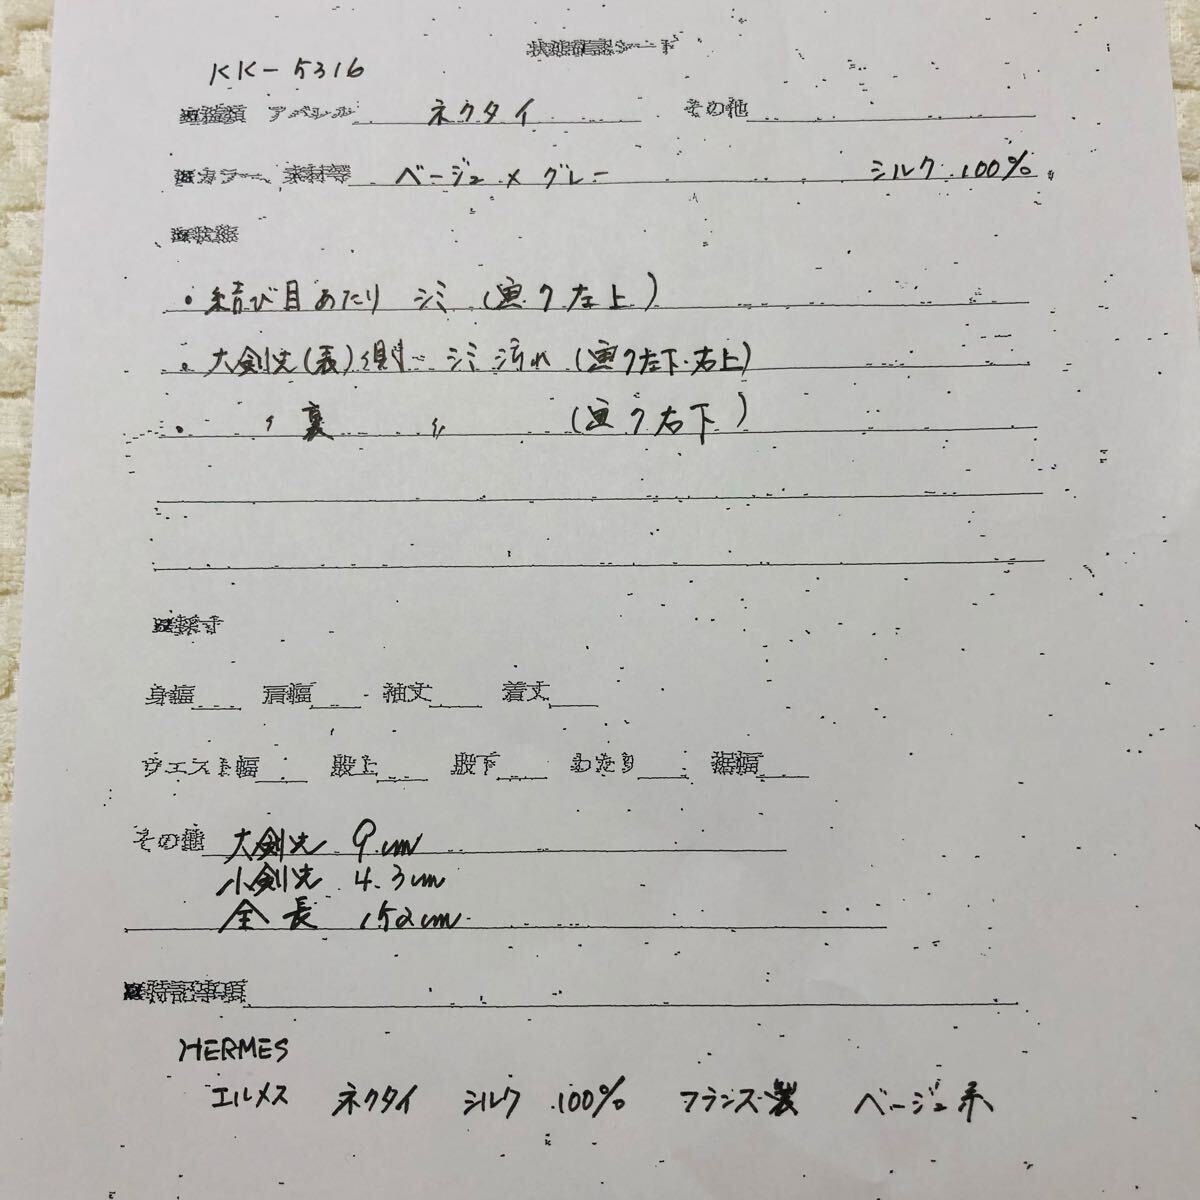 状態確認シート
KK-5316
■種類 アパレル ネクタイ その他
■カラー、素材等 ベージュ×グレー シルク 100%
■状態
・結び目あたり シミ (画ク左上)
・大剣先(表)側 シミ 汚れ (画ク左下・右上)
・ 〃 裏 〃 (画ク右下)
■採寸
身幅 肩幅 袖丈 着丈
ウエスト幅 股上 股下 わたり 裾幅
その他 大剣先 9cm
小剣先 4.3cm
全長 152cm
■特記事項
HERMES
エルメス ネクタイ シルク 100% フランス製 ベージュ系